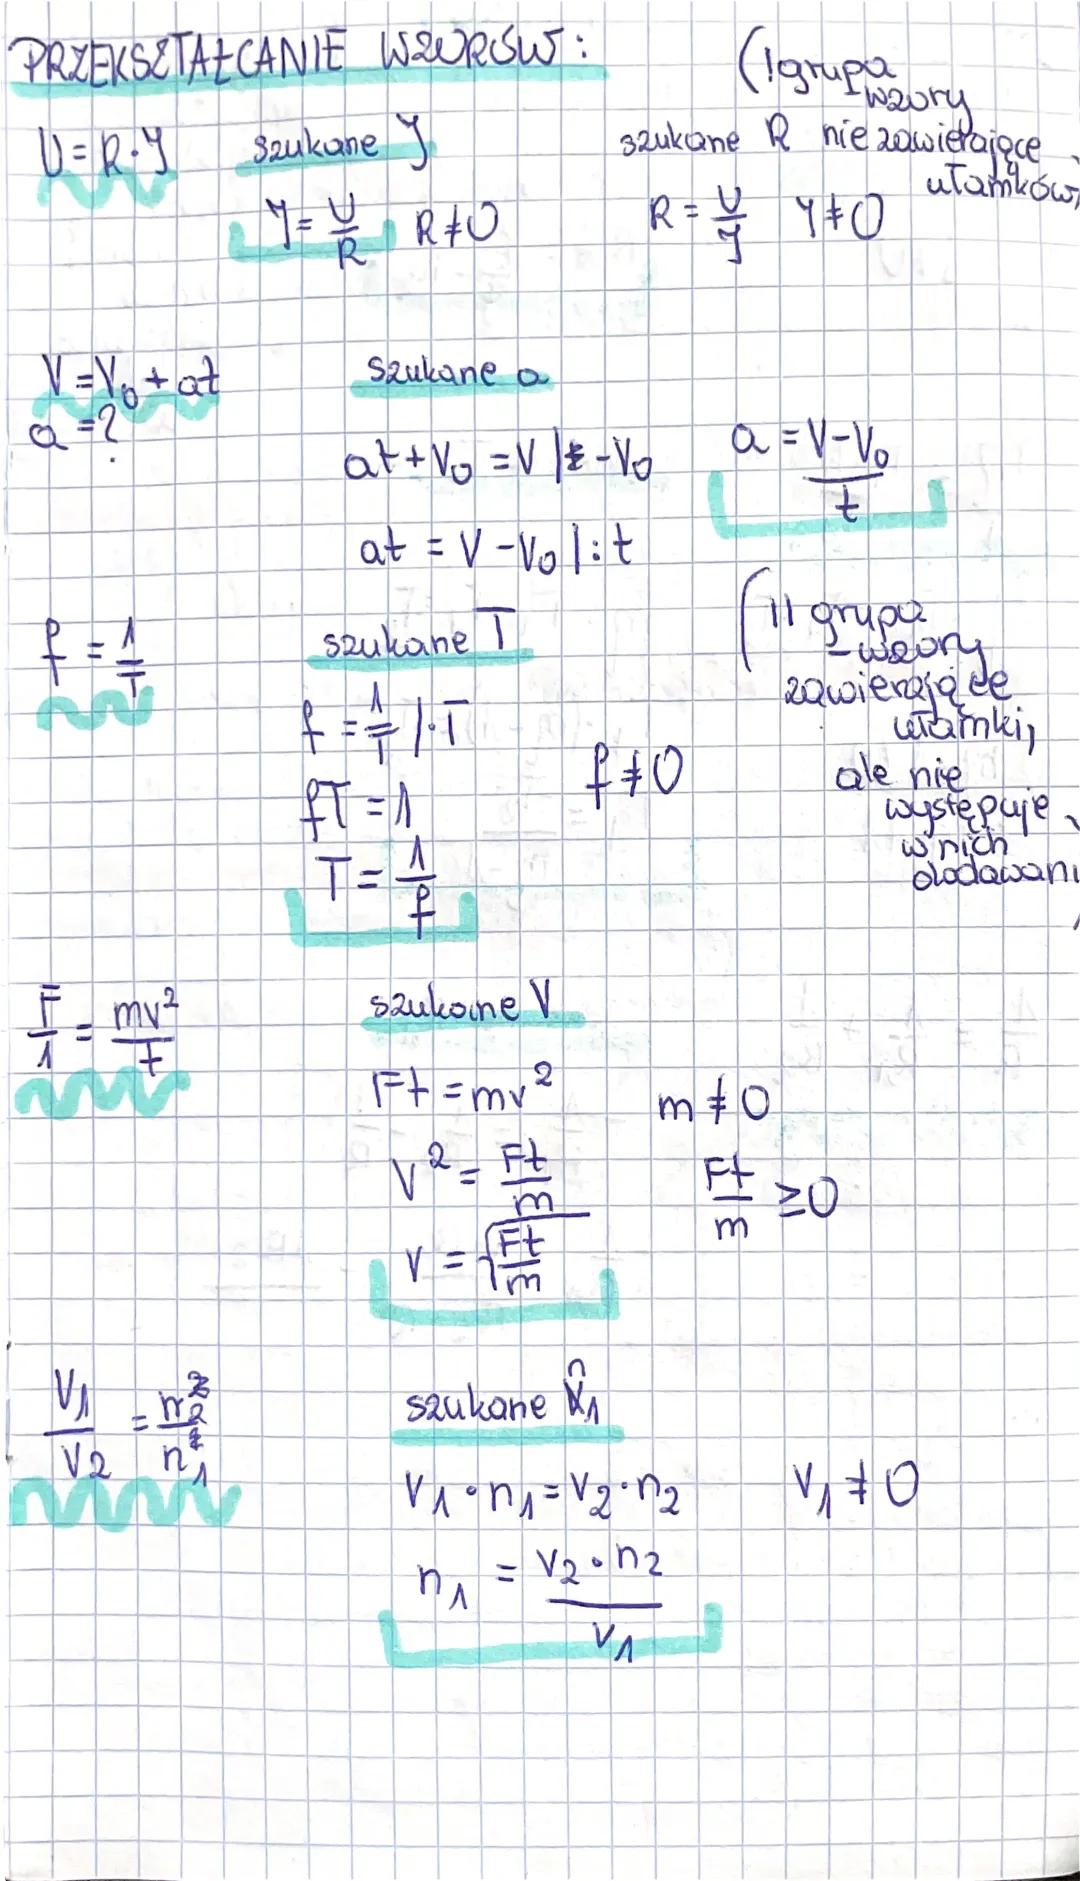 PRZEKSZTAŁCANIE WZORÓW:
(I grupa
wzory
nie zawierające
ułamków)
U = R·J
szukane J
szukane R
J = U/R  R ≠ 0
R = U/J  J ≠ 0
V = V₀ + at
szukane a
a = ?
at + V₀ = V |-V₀
a = (V - V₀)/t
at = V - V₀ |:t
(II grupa
- wzory
zawierające
ułamki,
ale nie
występuje
w nich
dodawani
f = 1/T
szukane T
f = 1/T |·T
fT = 1
f ≠ 0
T = 1/f
F/1 = mv²/t
szukane V
Ft = mv²
m ≠ 0
V² = Ft/m
Ft/m ≥ 0
V = √(Ft/m)
V₁/V₂ = n₂/n₁
szukane n₁
V₁·n₁ = V₂·n₂
V₁ ≠ 0
n₁ = (V₂·n₂)/V₁